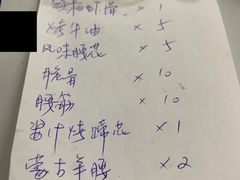 烤牛油 × 5
风味腰花 × 5
脆骨 × 10
腰筋 × 10
酱汁烤蹄花 × 1
蒙古羊腰 × 2